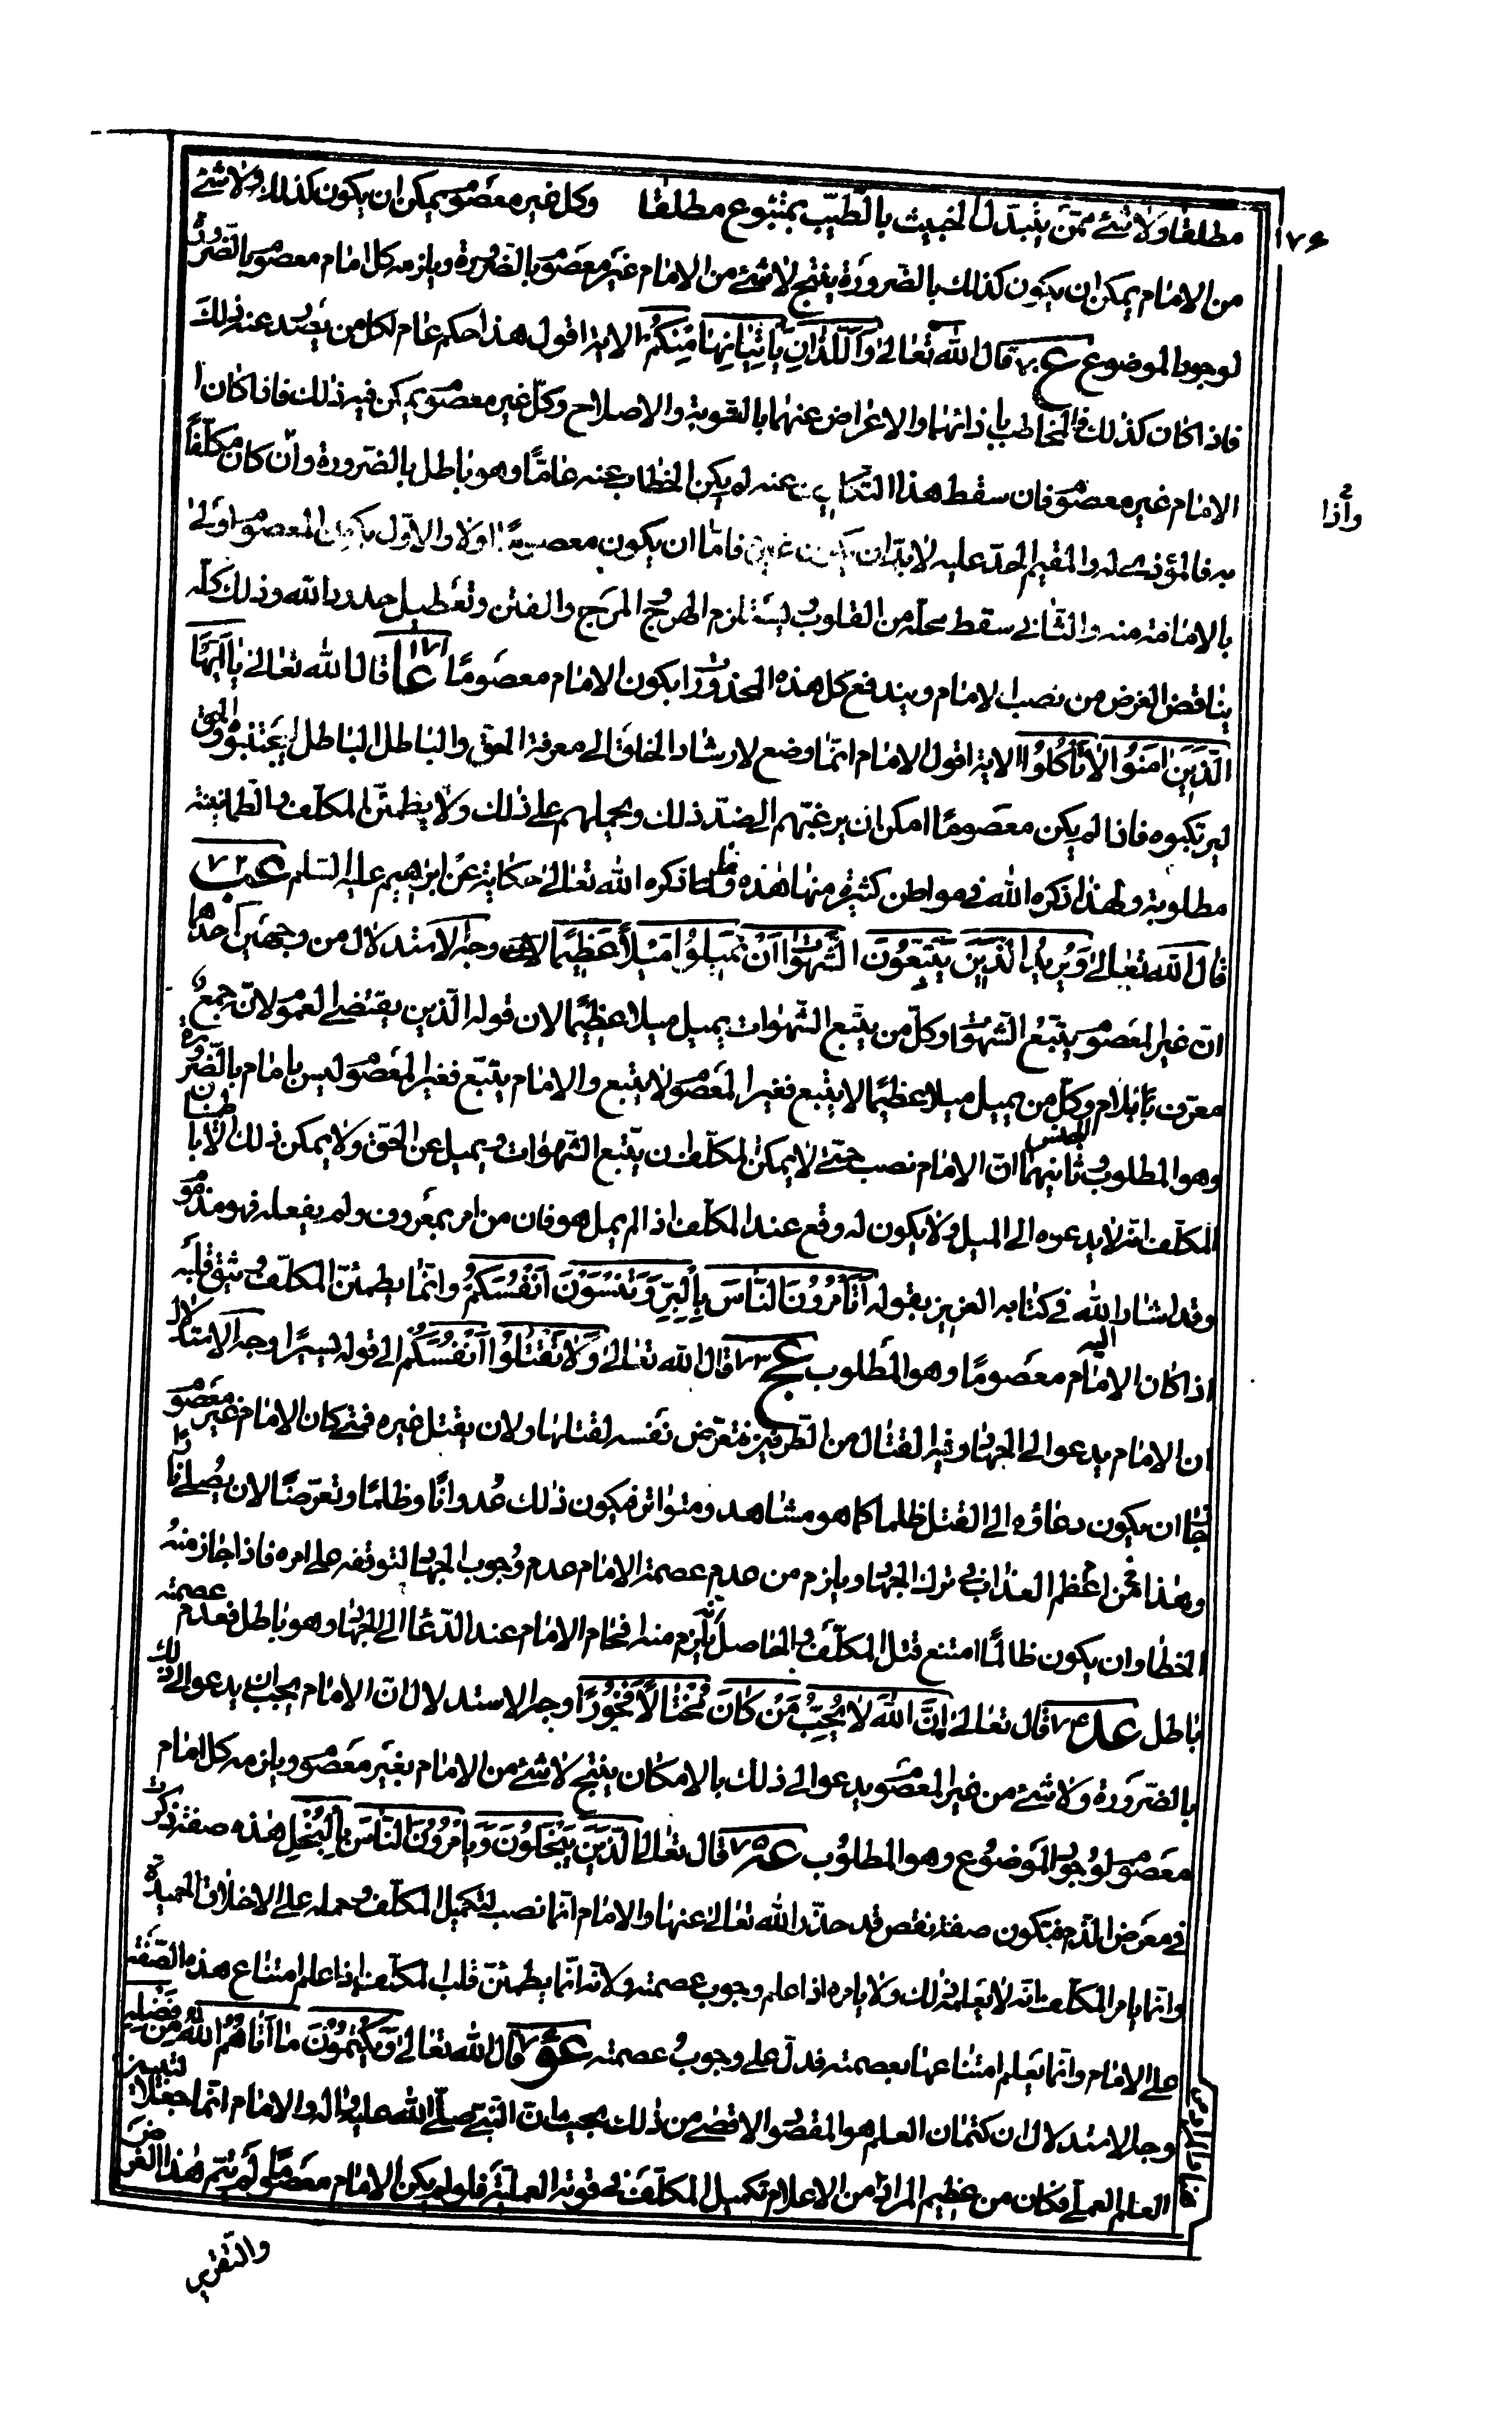 ١٧۶
مطلقا ولا شئ ممن يتبدل الخبيث بالطيب بمتبوع مطلقا وكل غير معصوم يمكن ان يكون كذلك ولا شئ
من الامام يمكن ان يكون كذلك بالضرورة ينتج لا شئ من الامام غير معصوم بالضرورة ويلزمه كل امام معصوم بالضرورة
لوجود الموضوع ع ٧٠ قال الله تعالى وَاللَّذَانِ يَأْتِيَانِهَا مِنْكُمْ الاية اقول هذا حكم عام لكل من يصدر عنه ذلك
فاذا كان كذلك فالمخاطب باذائهما والاعراض عنهما بالتوبة والاصلاح وكل غير معصوم يمكن فيه ذلك فاذا كان
الامام غير معصوم فان سقط هذا عنه لم يكن الخطاب عنه عاما وهو باطل بالضرورة وان كان مكلفا
وأذا
به فالمؤذى له والمقيم الحد عليه لا بد ان يكون غيره فاما ان يكون معصوما اولا والاول يكون المعصوم اولى
بالامامة منه والثانى سقط محله من القلوب يستلزم الهرج والمرج والفتن وتعطيل حدود الله وذلك كله
يناقض الغرض من نصب الامام ويندفع كل هذه المحذورات بكون الامام معصومًا عا ٧١ قال الله تعالى يَا أَيُّهَا
الَّذِينَ آمَنُوا لَا تَأْكُلُوا الاية اقول الامام انما وضع لارشاد الخلق الى معرفة الحق والباطل الباطل ليجتنبوه والحق
ليرتكبوه فاذا لم يكن معصومًا امكن ان يرغبهم الى ضد ذلك ويحملهم على ذلك ولا يطمئن المكلف والطمانينة
مطلوبة ولهذا ذكره الله فى مواطن كثيرة منها هذه ومنها ما ذكره الله تعالى حكاية عن ابرهيم عليه السلم عب ٧٢
قال الله تعالى وَيُرِيدُ الَّذِينَ يَتَّبِعُونَ الشَّهَوَاتِ أَنْ تَمِيلُوا مَيْلًا عَظِيمًا الاية وجه الاستدلال من وجهين احدهما
ان غير المعصوم يتبع الشهوات وكل من يتبع الشهوات يميل ميلا عظيمًا لان قوله الذين يقتضى العموم لانه جمع
معرف باللام وكل من يميل ميلا عظيمًا لا يتبع فغير المعصوم لا يتبع والامام يتبع فغير المعصوم ليس بامام بالضرورة
وهو المطلوب ثانيهما ان الامام نصب حتى لا يمكن المكلف ان يتبع الشهوات ويميل عن الحق ولا يمكن ذلك الا باطمينان
المكلف انه لا يدعوه الى الميل ولا يكون له وقع عند المكلف اذا لم يمل هو فان من امر بمعروف ولم يفعله فهو مذموم
وقد اشار الله فى كتابه العزيز بقوله أَتَأْمُرُونَ النَّاسَ بِالْبِرِّ وَتَنْسَوْنَ أَنْفُسَكُمْ وانما يطمئن المكلف ويثق قلبه
اليه اذا كان الامام معصومًا وهو المطلوب عج ٧٣ قال الله تعالى وَلَا تَقْتُلُوا أَنْفُسَكُمْ الى قوله يسيرًا وجه الاستدلال
ان الامام يدعو الى الجهاد وفيه القتال من الطرفين فتعرض نفسه لقتلها ولان يقتل غيره فمتى كان الامام غير معصوم
جاز ان يكون دعاؤه الى القتل ظلما كما هو مشاهد ومتواتر فيكون ذلك عدوانا وظلما وتعرضًا لان يصلى نارا
وهذا من اعظم العذاب فى ترك الجهاد ويلزم من عدم عصمة الامام عدم وجوب الجهاد لتوقفه على امره فاذا جاز منه
الخطا وان يكون ظالمًا امتنع قتل المكلف والحاصل انه يلزم منه افحام الامام عند الدعاء الى الجهاد وهو باطل فعدم عصمته
باطل عد ٧۴ قال تعالى إِنَّ اللَّهَ لَا يُحِبُّ مَنْ كَانَ مُخْتَالًا فَخُورًا وجه الاستدلال ان الامام يجب ان يدعو الى ذلك
بالضرورة ولا شئ من غير المعصوم يدعو الى ذلك بالامكان ينتج لا شئ من الامام بغير معصوم ويلزمه كل امام
معصوم لوجود الموضوع وهو المطلوب عه ٧٥ قال تعالى الَّذِينَ يَبْخَلُونَ وَيَأْمُرُونَ النَّاسَ بِالْبُخْلِ هذه صفة ذكرت
فى معرض الذم فتكون صفة نقص قد حذر الله تعالى عنها والامام انما نصب لتكميل المكلف وحمله على الاخلاق الحميدة
وانما يامر المكلف انه لا يعلمه ذلك ولا يامره اذا علم وجوب عصمته ولانه انما يطمئن قلب المكلف اذا علم امتناع هذه الصفة
على الامام وانما يعلم امتناعها بعصمته فدل على وجوب عصمته عو ٧۶ قال الله تعالى وَيَكْتُمُونَ مَا آتَاهُمُ اللَّهُ مِنْ فَضْلِهِ
وجه الاستدلال ان كتمان العلم هو المقصود الاقصى من ذلك يجب ان النبى صلى الله عليه واله والامام انما جعلا لتبيين
العلم العملى فكان من عظيم المراد من الاعلام تكميل المكلف فى قوته العملية فلو لم يكن الامام معصومًا لم يتم هذا الغرض
والتقريب